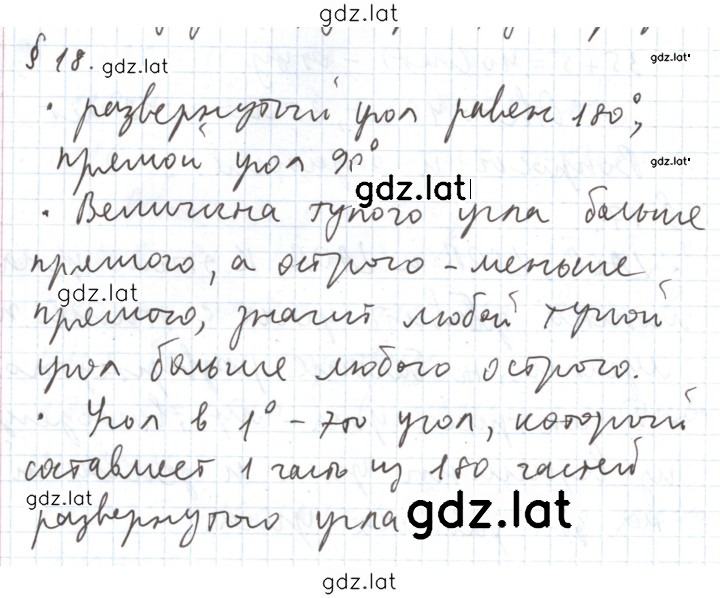 gdz.lat
§ 18. gdz.lat gdz.lat
• развернутый угол равен 180°,
прямой угол 90° gdz.lat
gdz.lat
• Величина тупого угла больше
прямого, а острого - меньше
gdz.lat
прямого, значит любой тупой
угол больше любого острого.
• Угол в 1° - это угол, который
составляет 1 часть из 180 частей
gdz.lat
развернутого угла gdz.lat
gdz.lat